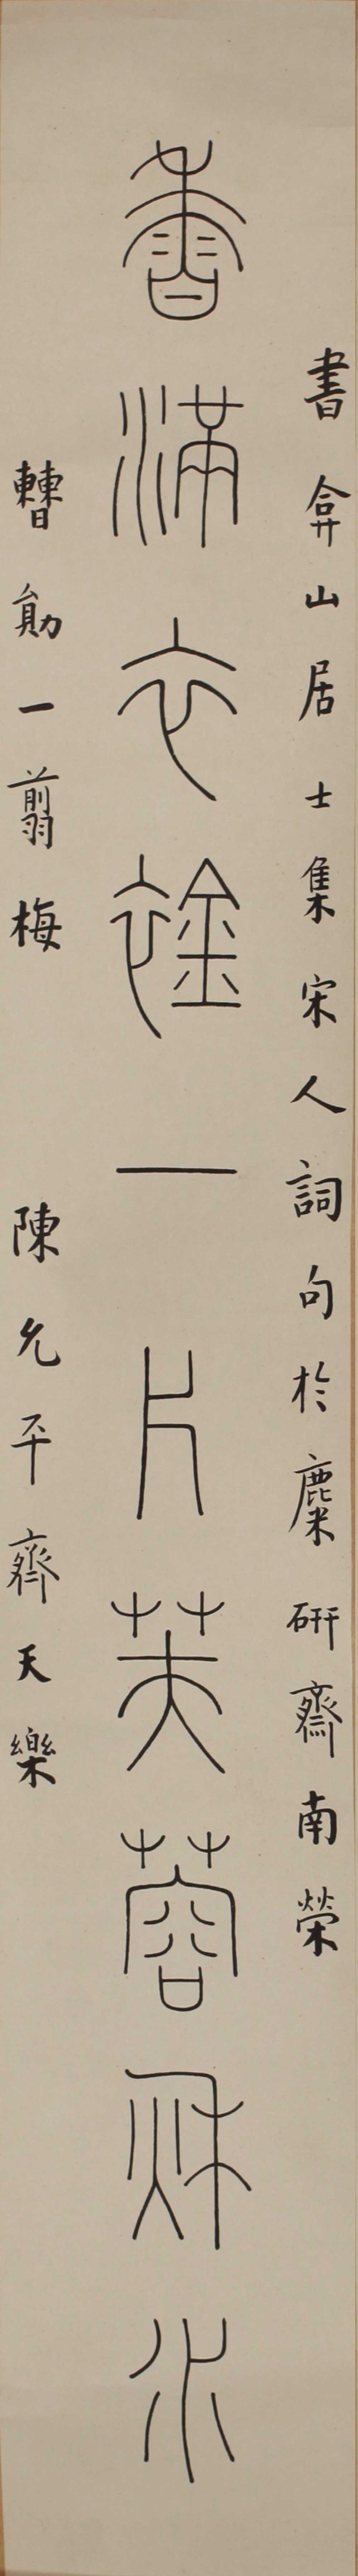 書弇山居士集宋人詞句於麋研齋南榮
香滿衣䘳一片芙蓉秋水
曹勛一翦梅 陳允平齊天樂